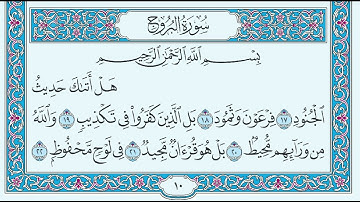 سُورَةُ البُرُوجِ
بِسْمِ اللَّهِ الرَّحْمَٰنِ الرَّحِيمِ
هَلْ أَتَىٰكَ حَدِيثُ
الْجُنُودِ ١٧ فِرْعَوْنَ وَثَمُودَ ١٨ بَلِ الَّذِينَ كَفَرُوا۟ فِى تَكْذِيبٍ ١٩ وَاللَّهُ
مِن وَرَآئِهِم مُّحِيطٌ ٢٠ بَلْ هُوَ قُرْءَانٌ مَّجِيدٌ ٢١ فِى لَوْحٍ مَّحْفُوظٍ ٢٢
١٠